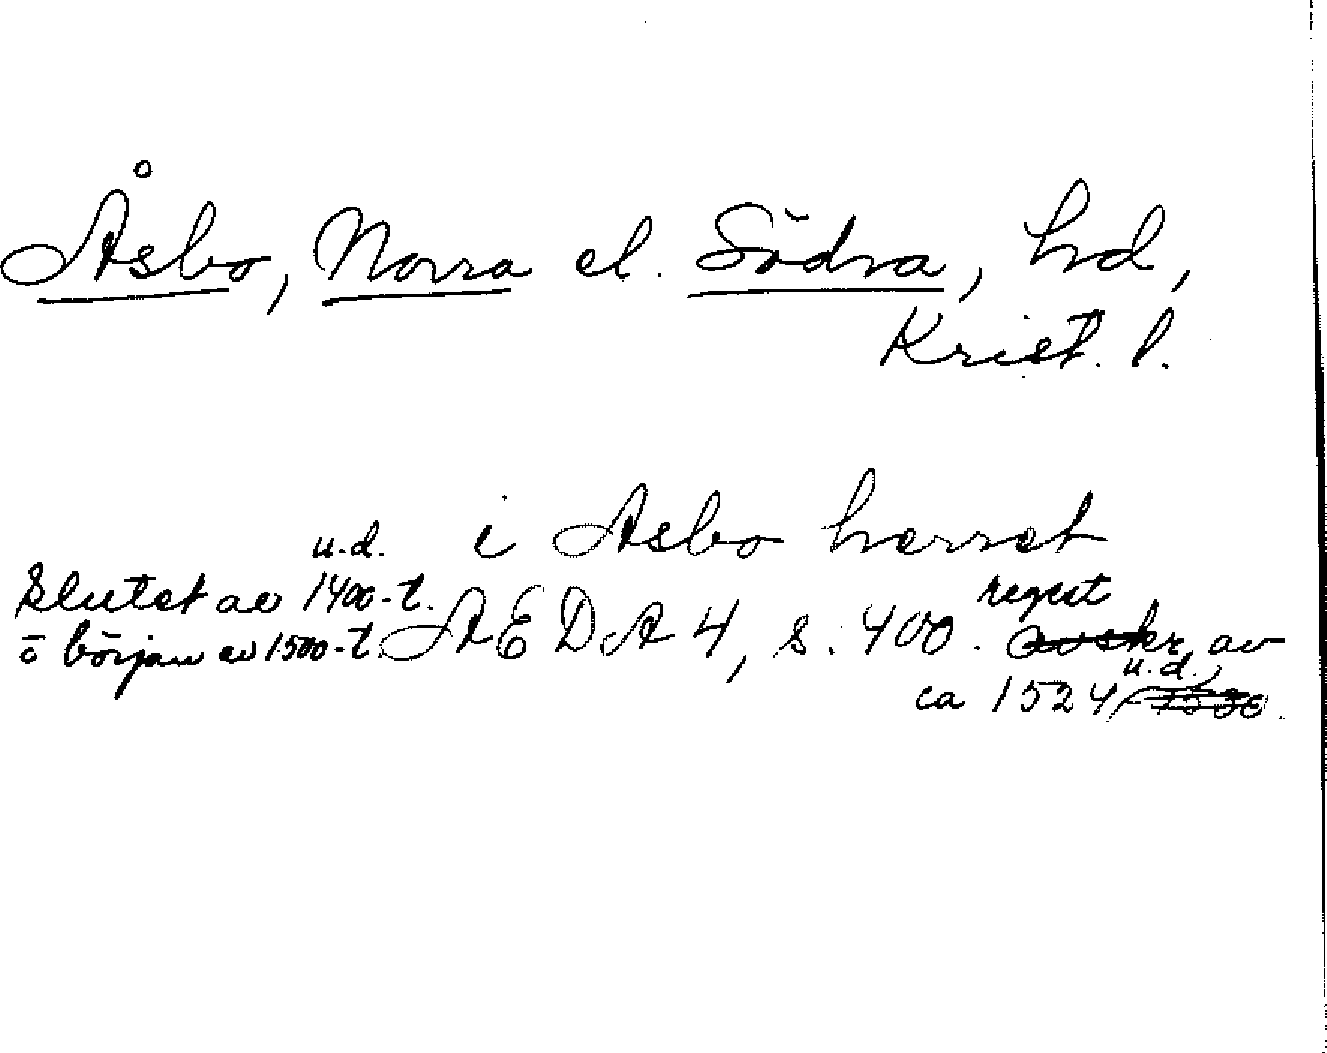 Åsbo, Norra el. Södra, hd,
Krist. l.
u.d. i Asbo herret
Slutet av 1400-t. regest
o början av 1500-t. AEDA 4, s. 400. avskr av
u.d.
ca 1524